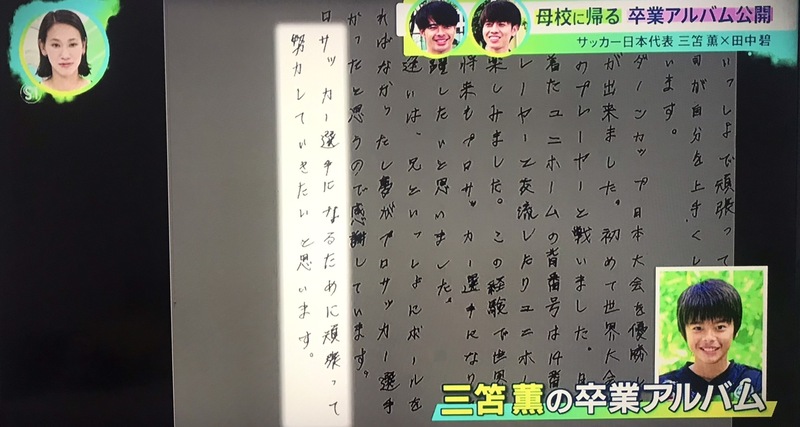 母校に帰る 卒業アルバム公開
サッカー日本代表 三笘 薫×田中碧
いっしょで頑張って
が自分を上手くし
います。
ダーンカップ日本大会を優勝し
が出来ました。初めて世界大会
のプレーヤーと戦いました。
着たユニホームの背番号は14番
レーヤーと交流したりユニホー
楽しみました。この経験で世界
将来もプロサッカー選手になり
躍したいと思いました。
は、兄といっしょにボールを
ればなかったし夢がプロサッカー選手
かったと思うので感謝しています。
ロサッカー選手になるために頑張って
努力していきたいと思います。
三笘 薫の卒業アルバム